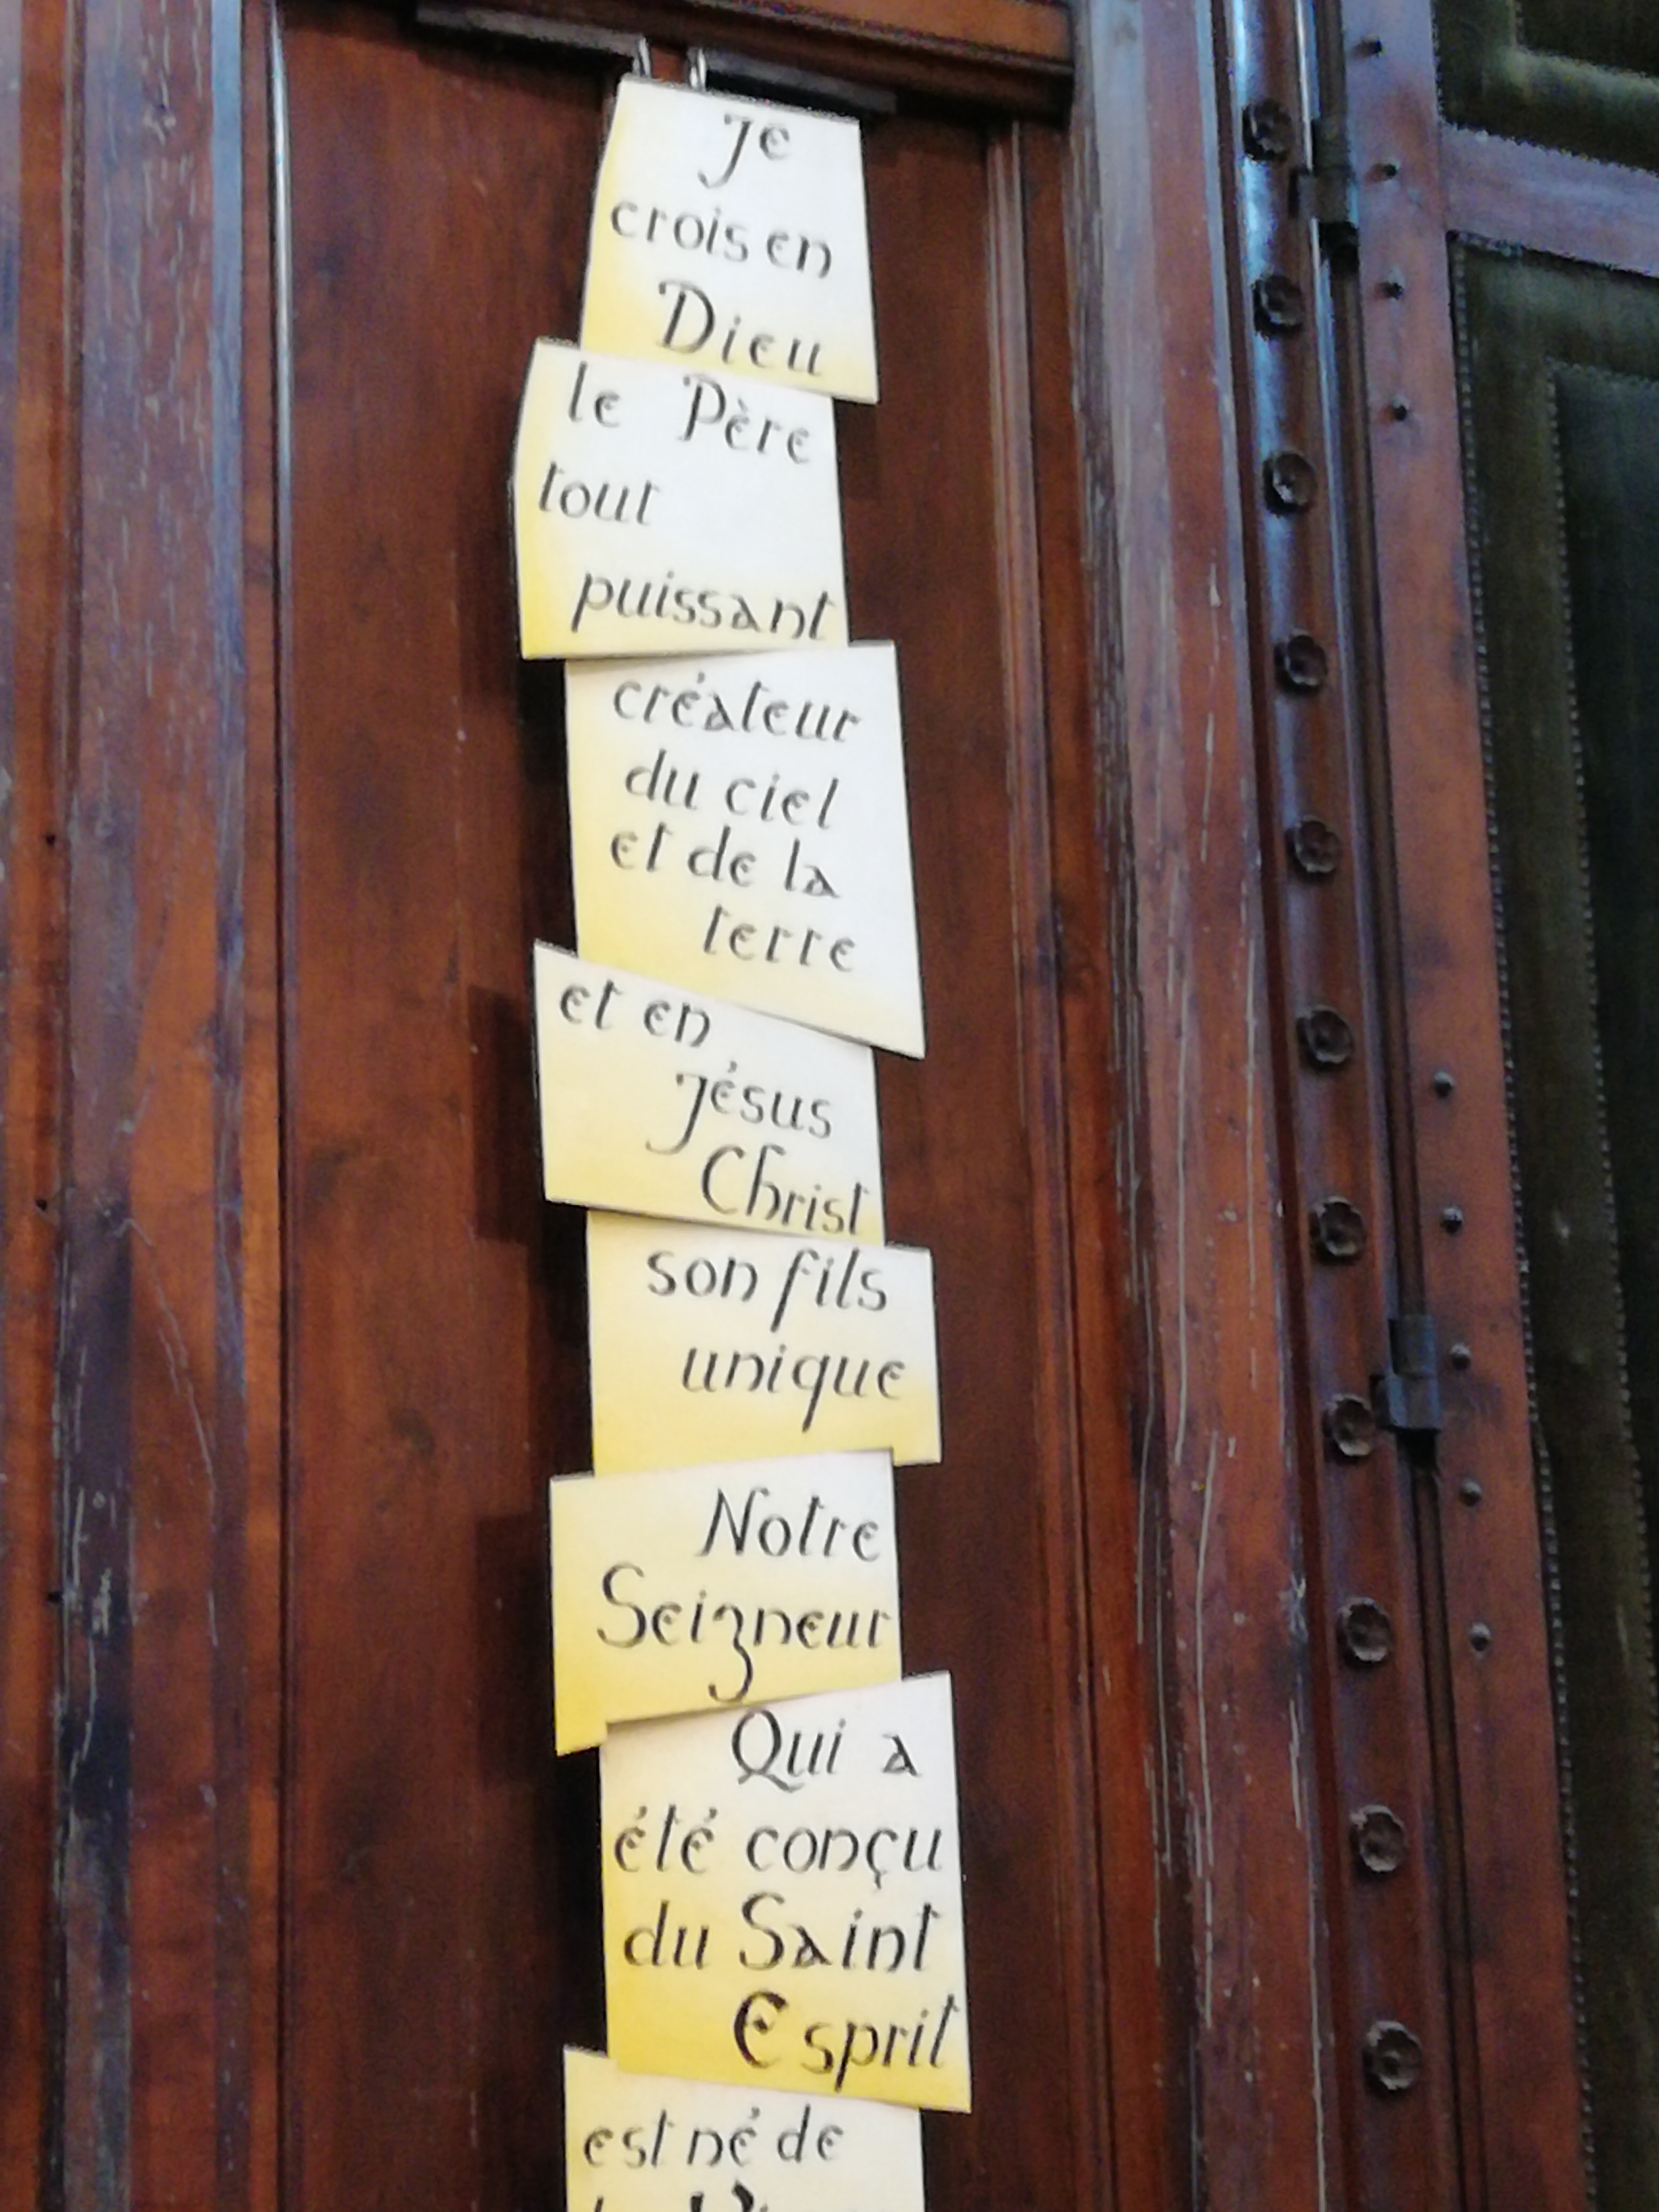 Je
crois en
Dieu
le Père
tout
puissant
créateur
du ciel
et de la
terre
et en
Jésus
Christ
son fils
unique
Notre
Seigneur
Qui a
été conçu
du Saint
Esprit
est né de